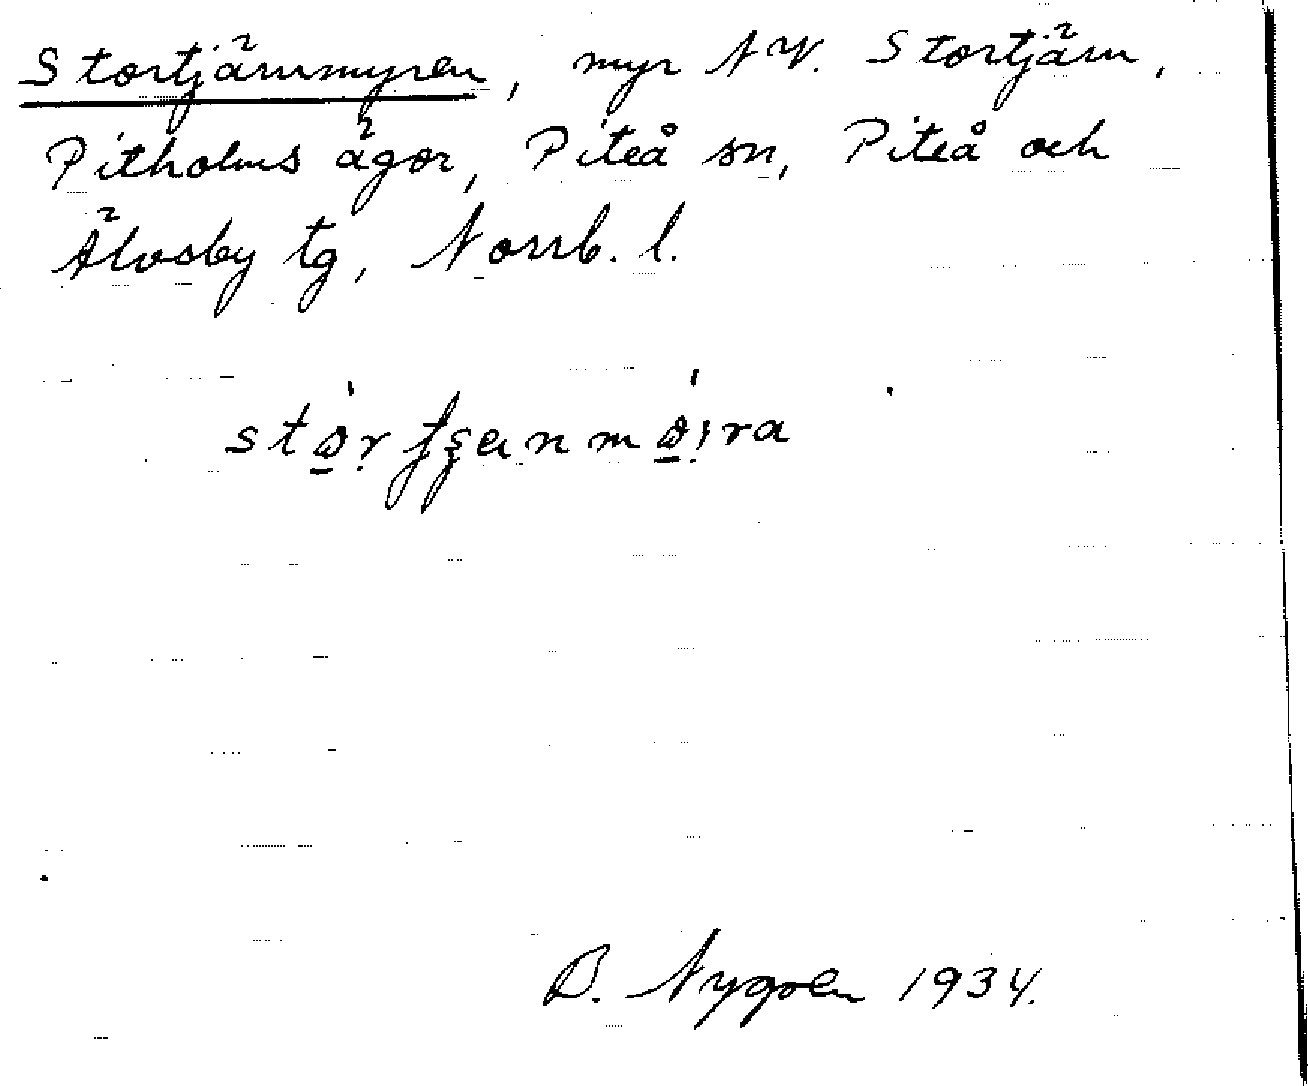 Stortjärnmyren, myr NV. Stortjärn,
Pitholms ägor, Piteå sn, Piteå och
Älvsby tg, Norrb. l.
B. Nygren 1934.